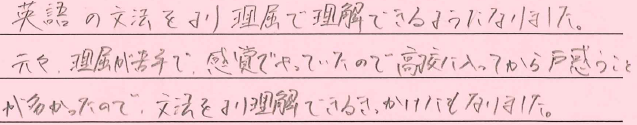 英語の文法をより理屈で理解できるようになりました。
元々、理屈が苦手で、感覚でやっていたので高校に入ってから戸惑うこと
が多かったので、文法をより理解できるきっかけにもなりました。